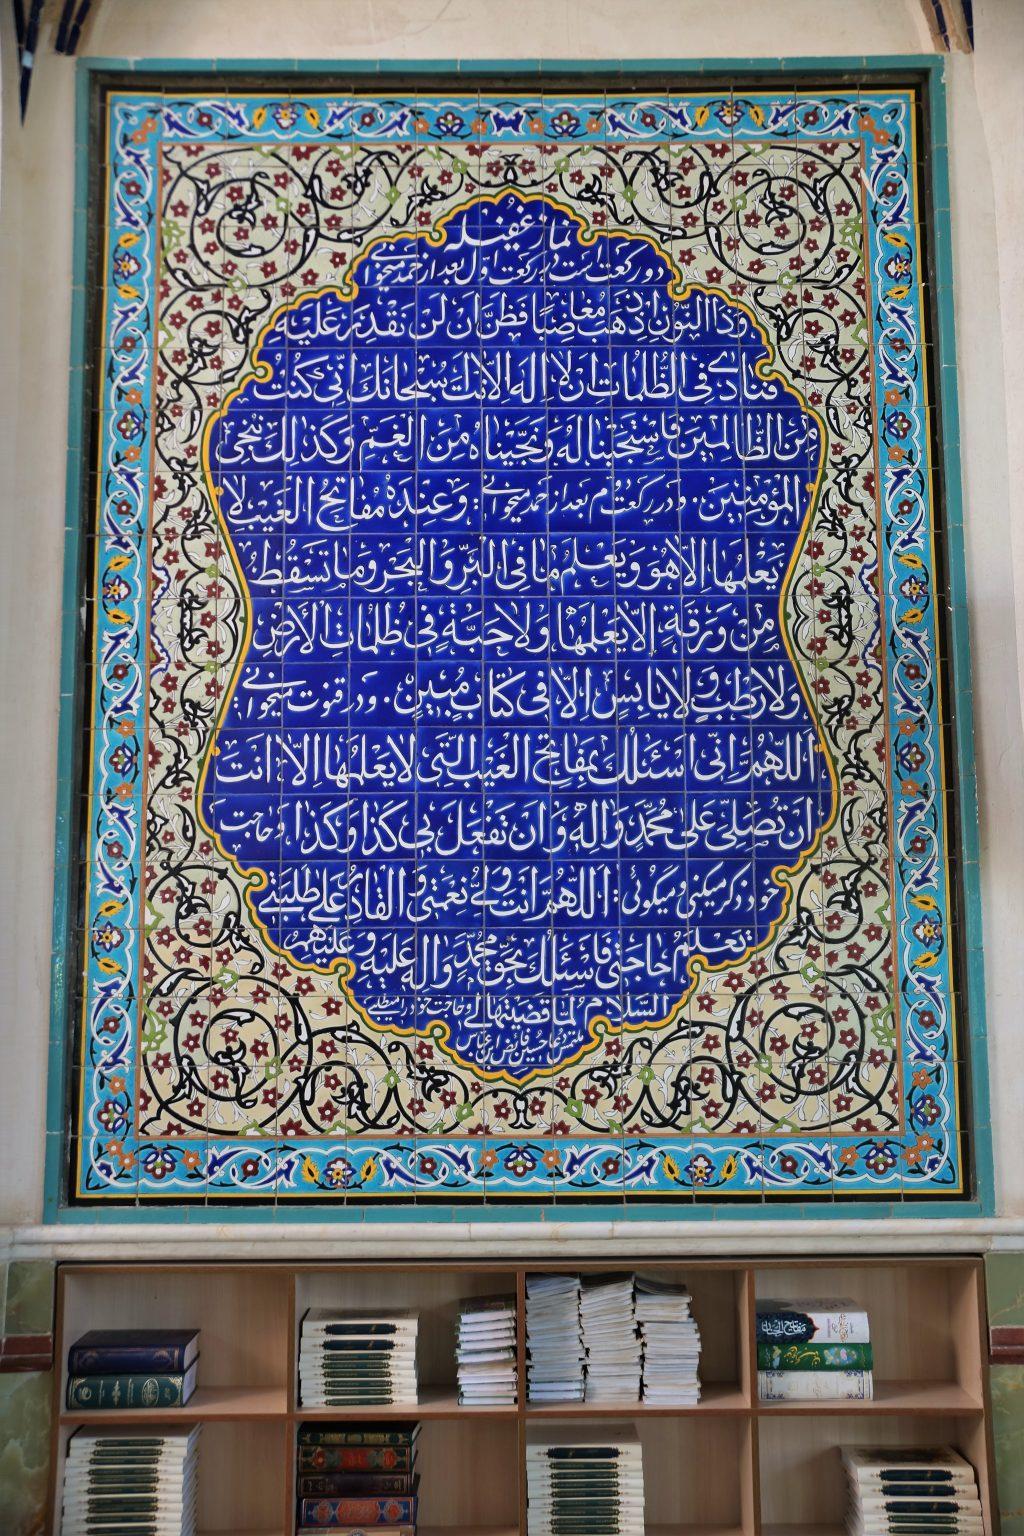 نماز غفیله
دو رکعت است در رکعت اول بعد از حمد میخوانی
وَذَا النّوُنِ اِذْ ذَهَبَ مُغاضِبًا فَظَنَّ اَنْ لَنْ نَقْدِرَ عَلَیْهِ
فَنادٰی فِی الظُّلُماتِ اَنْ لا اِلهَ اِلاّ اَنْتَ سُبْحانَكَ اِنّی کُنْتُ
مِنَ الظّالِمینَ فَاسْتَجَبْنا لَهُ وَنَجَّیْناهُ مِنَ الْغَمِّ وَکَذٰلِكَ نُنْجِی
الْمُؤْمِنینَ . و در رکعت دوم بعد از حمد میخوانی : وَعِنْدَهُ مَفاتِحُ الْغَیْبِ لا
یَعْلَمُها اِلاّ هُوَ وَیَعْلَمُ ما فِی الْبَرِّ وَالْبَحْرِ وَما تَسْقُطُ
مِنْ وَرَقَةٍ اِلاّ یَعْلَمُها وَلا حَبَّةٍ فی ظُلُماتِ الْاَرْضِ
وَلا رَطْبٍ وَلا یابِسٍ اِلاّ فی کِتابٍ مُبینٍ . و در قنوت میخوانی
اَللّهُمَّ اِنّی اَسْئَلُكَ بِمَفاتِحِ الْغَیْبِ الَّتی لا یَعْلَمُها اِلاّ اَنْتَ
اَنْ تُصَلِّیَ عَلی مُحَمَّدٍ وَالِهِ وَ اَنْ تَفْعَلَ بی کَذا وَ کَذا و حاجت
خود ذکر میکنی و میگوئی : اَللّهُمَّ اَنْتَ وَلِیُّ نِعْمَتی وَ الْقادِرُ عَلی طَلِبَتی
تَعْلَمُ حاجَتی فَاَسْئَلُكَ بِحَقِّ مُحَمَّدٍ وَ الِهِ عَلَیْهِ وَ عَلَیْهِمُ
السَّلامُ لَمّا قَضَیْتَها لی و حاجت خود را میطلبی
ملتمس دعا حسین
مفاتیح الجنان